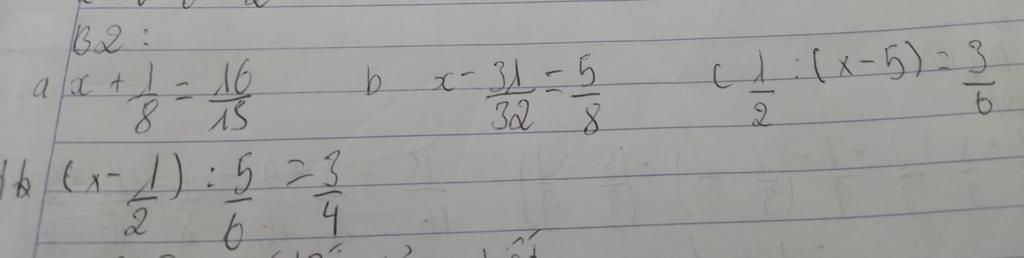 B2:
a x + 1/8 = 16/15 b x - 31/32 = 5/8 c 1/2 : (x - 5) = 3/6
(x - 1/2) : 5/6 = 3/4